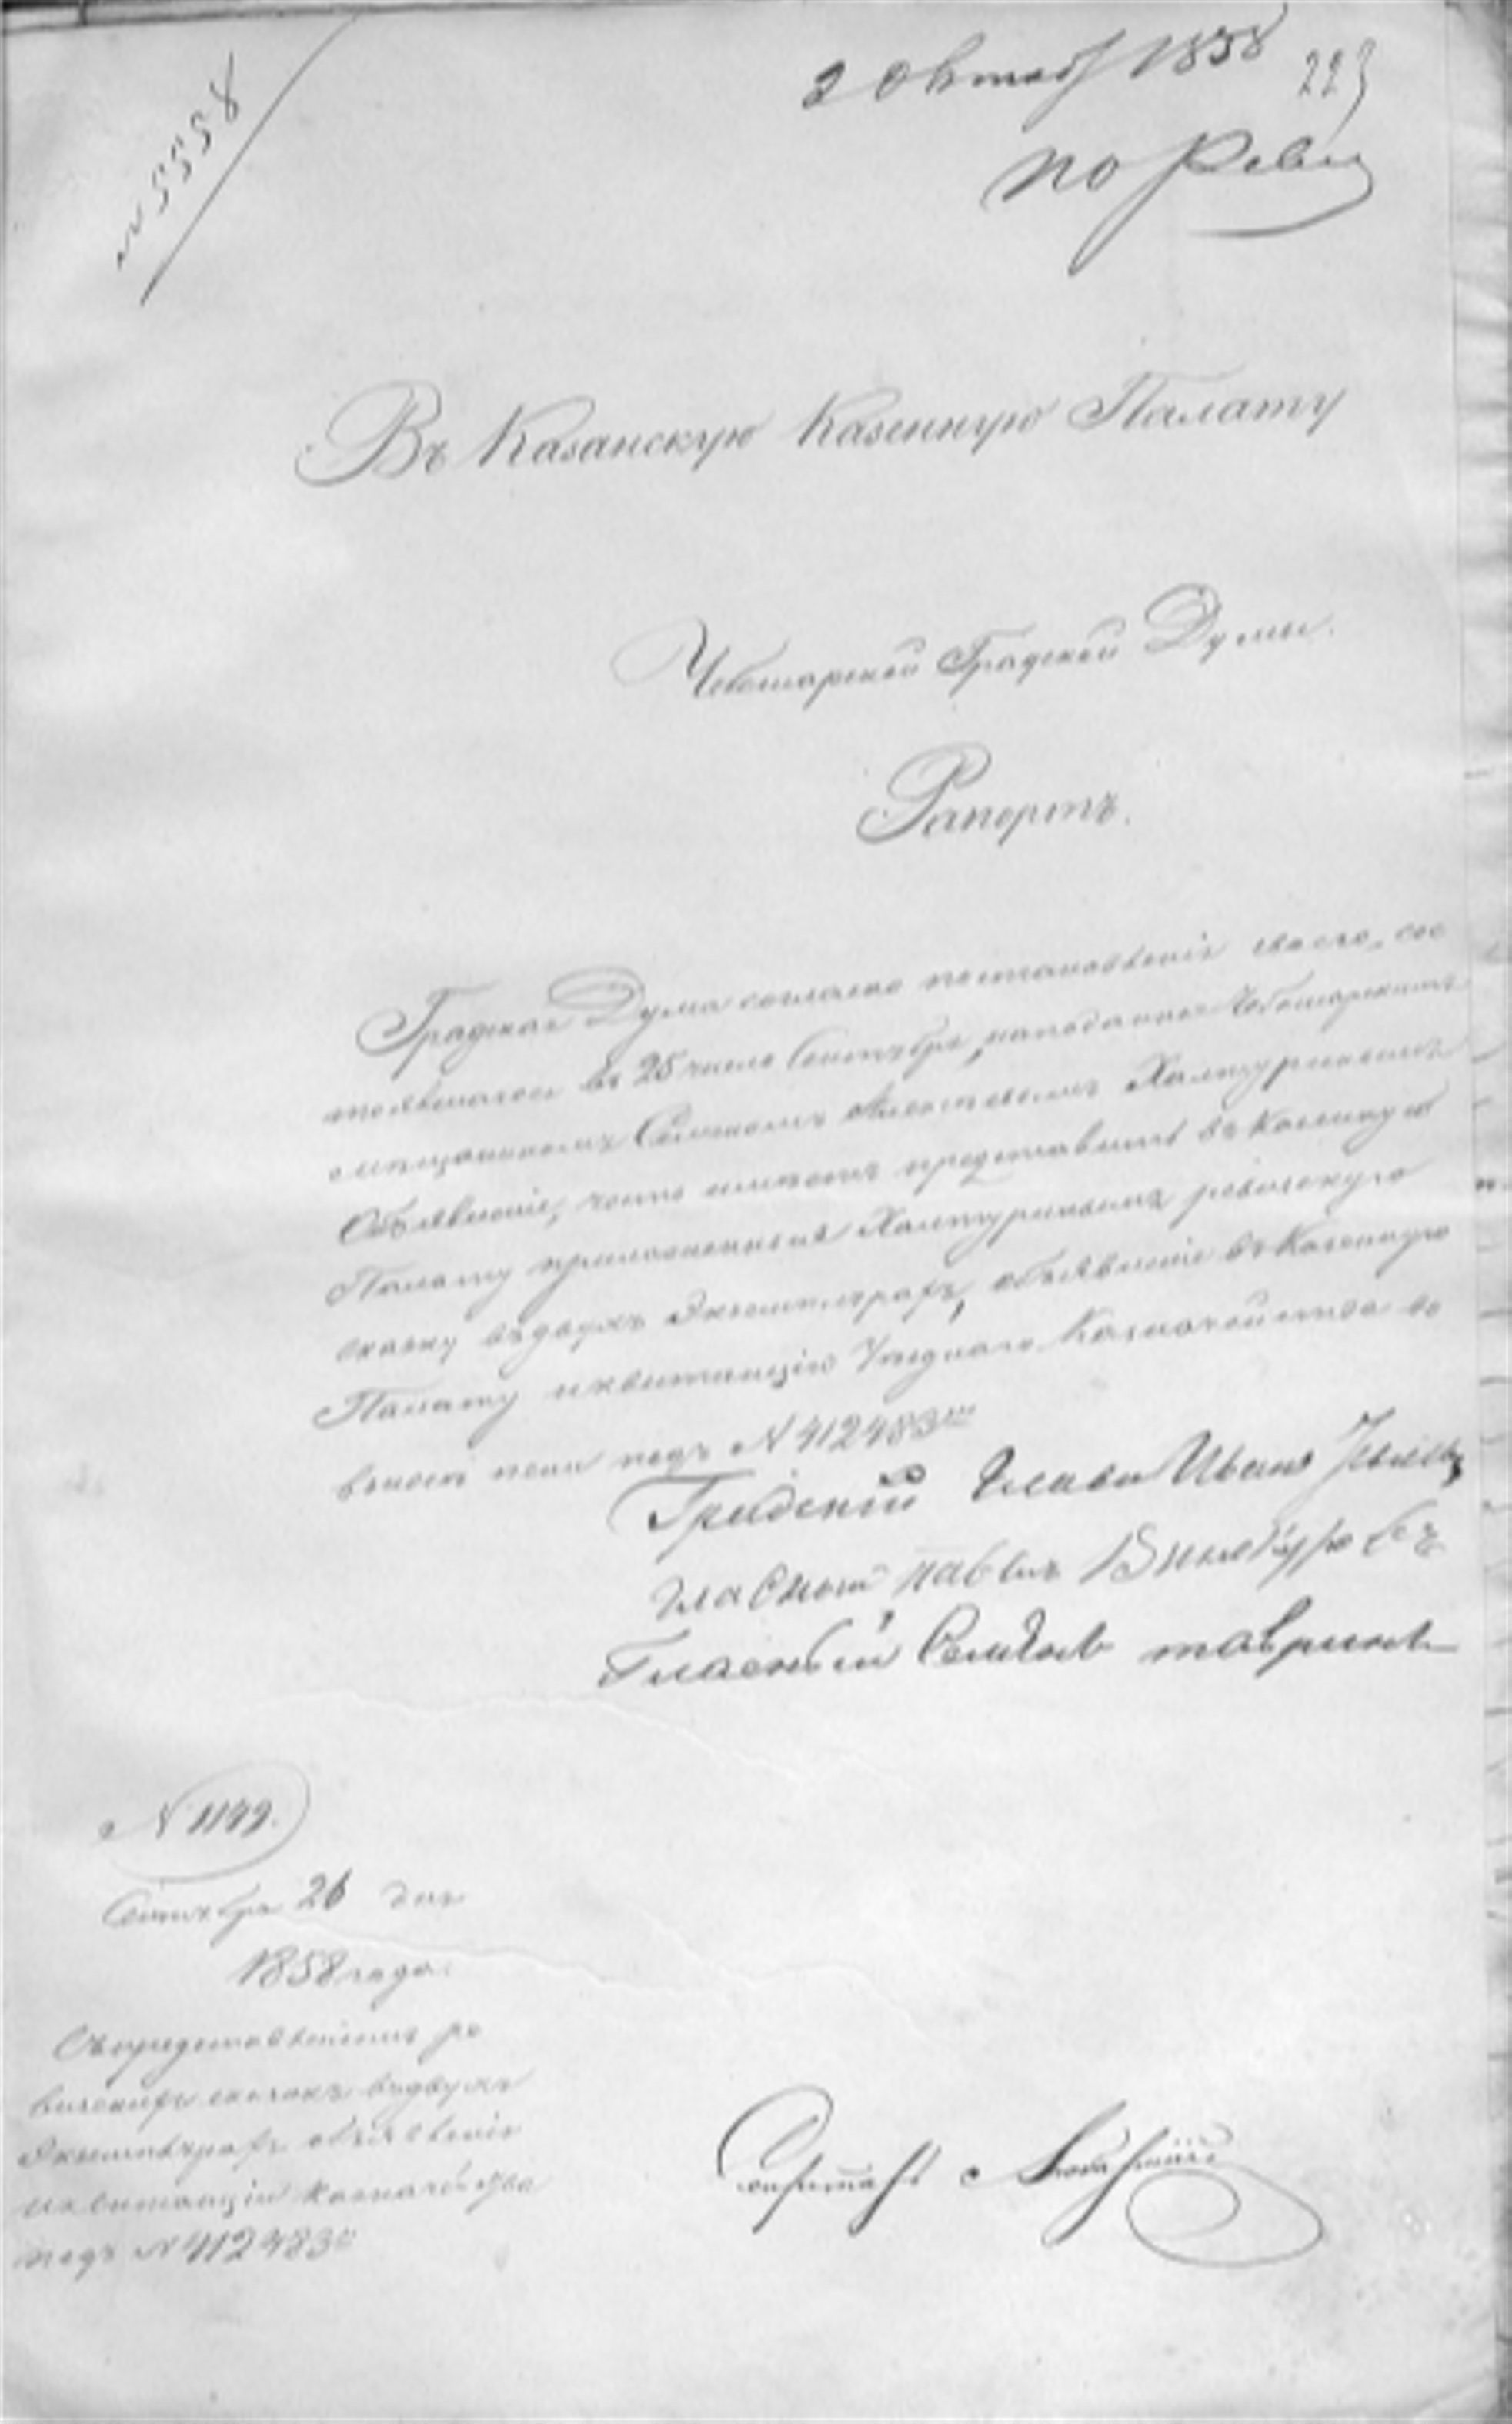 № 5558
2 Октяб 1858
223
по Ревиз
Въ Казанскую Казенную Палату
Чебоксарской Градской Думы.
Рапортъ.
Градская Дума согласно постановленія своего, сос
тоявшагося въ 25 число Сентября, на поданное Чебоксарскимъ
мѣщаниномъ Алексѣевымъ Халтуринымъ
Объявленіе, честь имѣетъ представить въ Казенную
Палату приложенныя Халтуринымъ ревизскую
сказку въ двухъ Экземплярахъ, объявленіе въ Казенную
Палату и квитанцію Уѣзднаго Казначейства во
взносѣ пени подъ № 412483
Градскій Глава Иванъ
Гласный Павелъ Винокуровъ
Гласный Семенъ Тавринъ
Сентября 26 дня
1858 года.
Съ представленіемъ ре
визскихъ сказокъ въ двухъ
Экземплярахъ объявленія
и квитанціи Казначейства
подъ № 412483
Секретарь